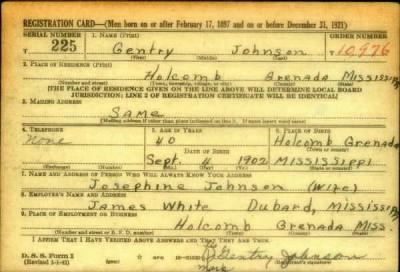 REGISTRATION CARD—(Men born on or after February 17, 1897 and on or before December 31, 1921)
SERIAL NUMBER 1. NAME (Print) ORDER NUMBER
T 225 Gentry Johnson T 10,976
(First) (Middle) (Last)
2. PLACE OF RESIDENCE (Print)
Holcomb Grenada Mississippi
(Number and street) (Town, township, village, or city) (County) (State)
[THE PLACE OF RESIDENCE GIVEN ON THE LINE ABOVE WILL DETERMINE LOCAL BOARD
JURISDICTION; LINE 2 OF REGISTRATION CERTIFICATE WILL BE IDENTICAL]
3. MAILING ADDRESS
Same
[Mailing address if other than place indicated on line 2. If same insert word same]
4. TELEPHONE 5. AGE IN YEARS 6. PLACE OF BIRTH
None 40 Holcomb Grenada
DATE OF BIRTH (Town or county)
Sept. 4 1902 Mississippi
(Mo.) (Day) (Yr.) (State or country)
7. NAME AND ADDRESS OF PERSON WHO WILL ALWAYS KNOW YOUR ADDRESS
Josephine Johnson (Wife)
8. EMPLOYER'S NAME AND ADDRESS
James White Dubard, Mississippi
9. PLACE OF EMPLOYMENT OR BUSINESS
Holcomb Grenada Miss.
(Number and street or R. F. D. number) (Town) (County) (State)
I AFFIRM THAT I HAVE VERIFIED ABOVE ANSWERS AND THAT THEY ARE TRUE.
D. S. S. Form 1 Gentry Johnson
(Registrant's signature)
mark